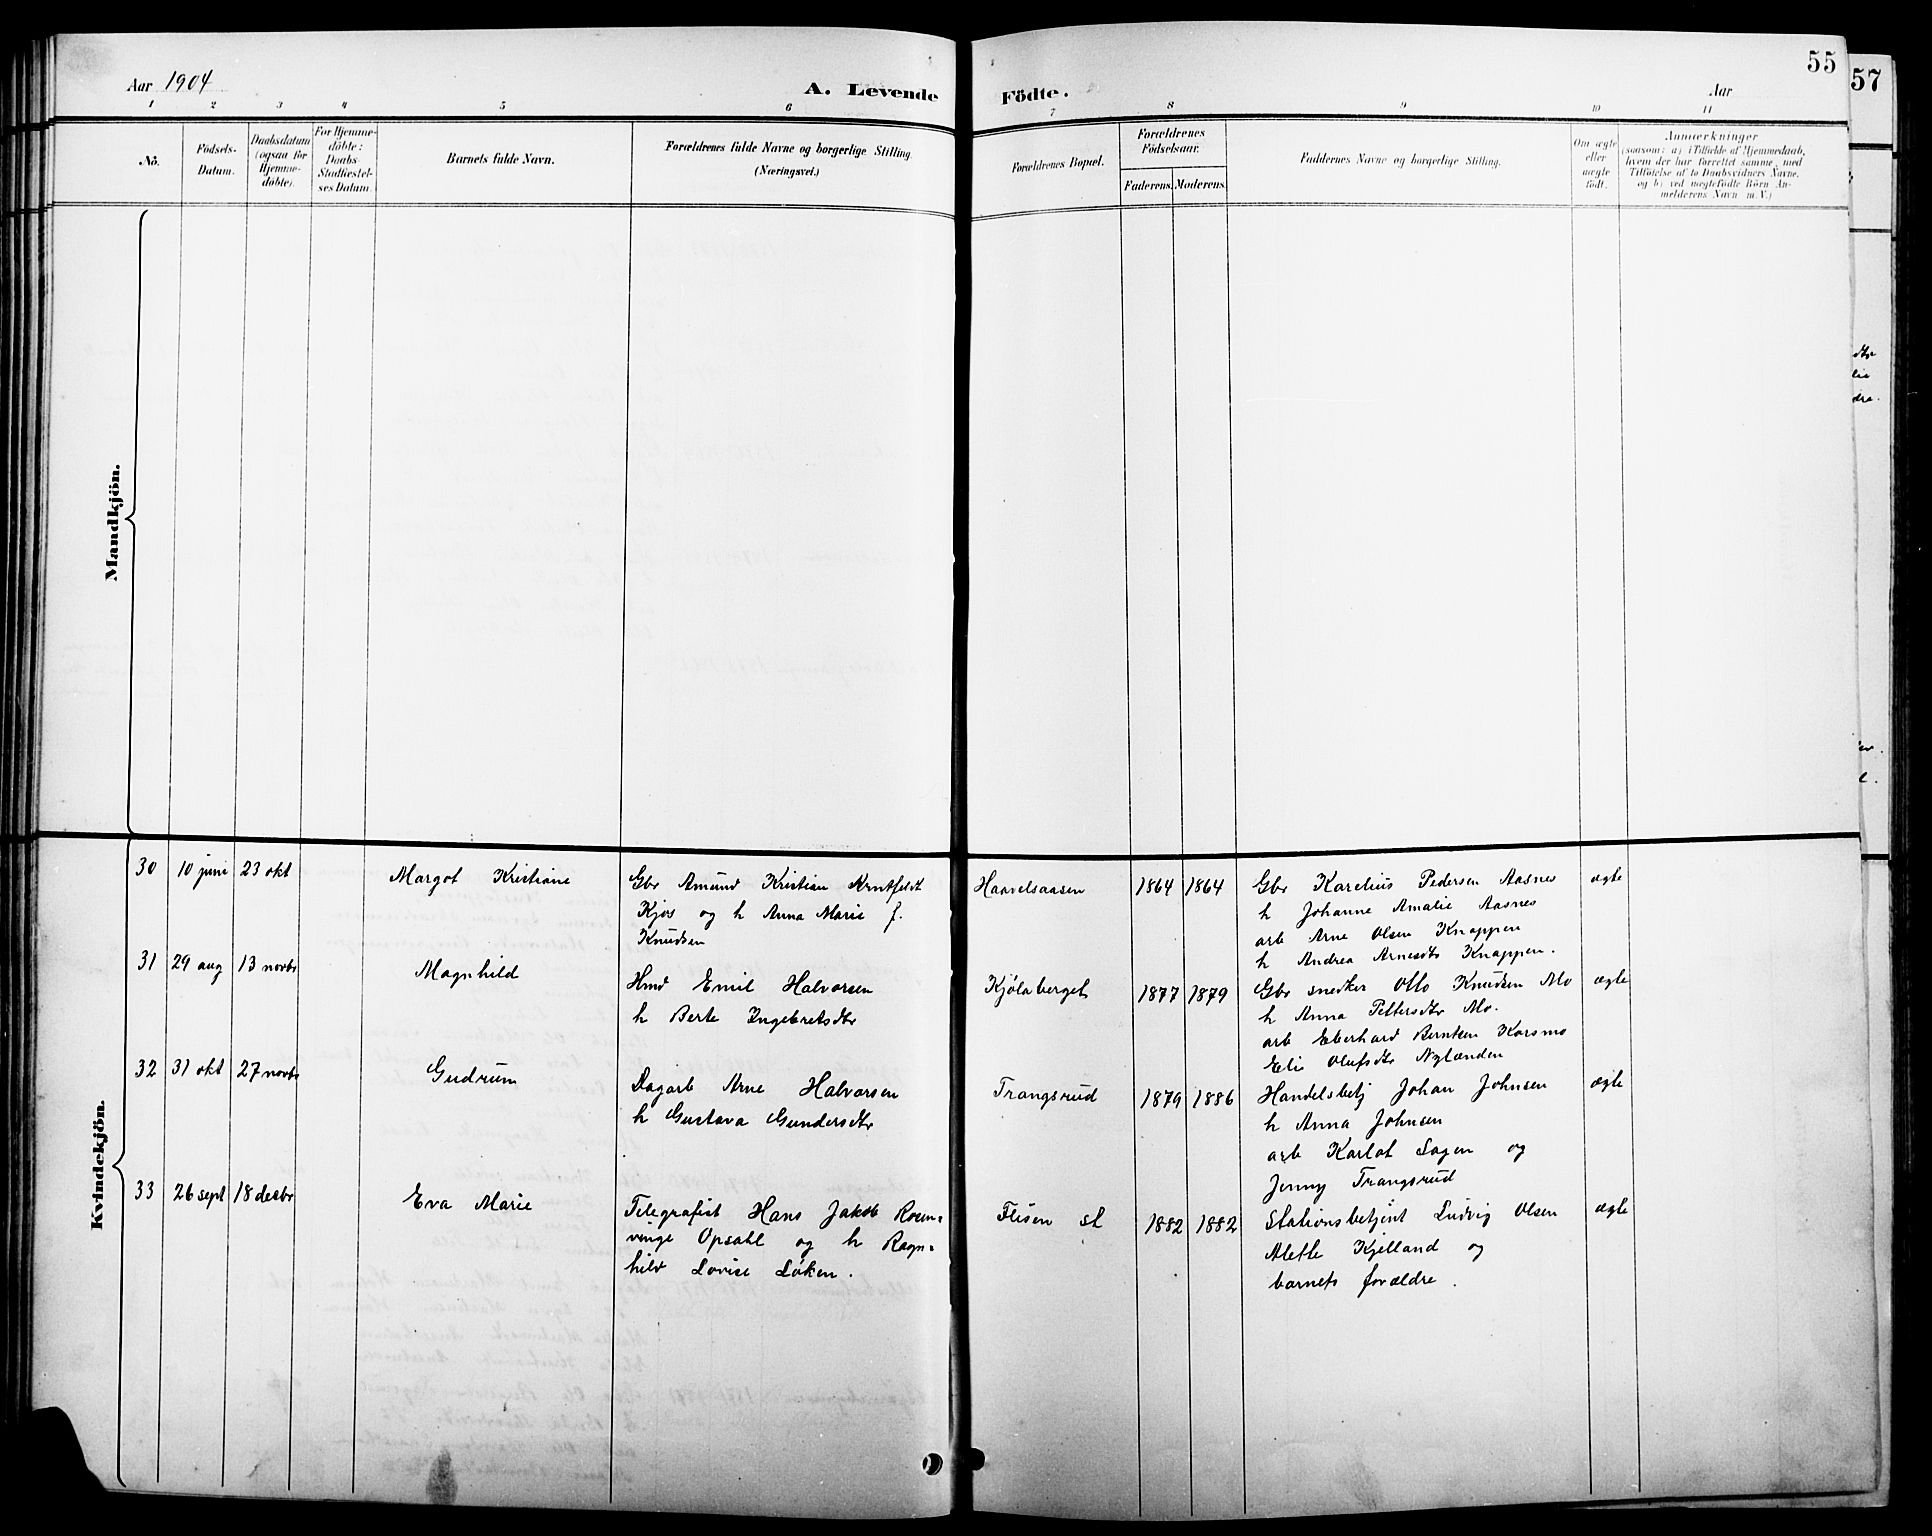 Aar 1904
A. Levende
Födte.
Aar
55
57
1 2 3 4 5 6 7 8 9 10 11
No.
Födsels-
Datum.
Daabsdatum
(ogsaa for
Hjemme-
döbte).
For Hjemme-
döbte:
Daabs-
Stadfæstel-
ses Datum.
Barnets fulde Navn.
Forældrenes fulde Navne og borgerlige Stilling
(Næringsvei.)
Forældrenes Bopæl.
Forældrenes
Födselsaar.
Faderens. Moderens.
Faddernes Navne og borgerlige Stilling.
Om ægte
eller
uægte
födt.
Anmærkninger
(saasom: a) i Tilfælde af Hjemmedaab,
hvem der har forrettet samme, med
Tilföielse af to Daabsvidners Navne,
og b) ved uægtefödte Börn An-
melderens Navn m.V.)
Mandkjön.
Kvindekjön.
30 10 juni 23 okt Margot Kristiane
Gbr Amund Kristian Arntfeldt
Kjos og h Anna Marie f.
Knudsen
Haavelsaasen 1864 1864
Gbr Karelius Pedersen Aasnes
h Johanne Amalie Aasnes
arb Arne Olsen Knappen
h Andrea Arnesdtr Knappen.
ægte
31 29 aug 13 novbr Magnhild
Hmd Emil Halvorsen
h Berte Ingebretsdtr
Kjølaberget 1877 1879
Gbr snedker Otto Knudsen Mo
h Anna Pettersdtr Mo.
arb Eberhard Berntsen Korsmo
Eli Olufsdtr Nylænden
ægte
32 31 okt 27 novbr Gudrum
Dagarb Arne Halvorsen
h Gustava Gundersdtr
Trangsrud 1879 1886
Handelsbetj Johan Johnsen
h Anna Johnsen
arb Karlot Lagen og
Jenny Trangsrud
ægte
33 26 sept 18 decbr Eva Marie
Telegrafist Hans Jakob Rosen-
vinge Opsahl og h Ragn-
hild Lovise Løken.
Flisen st 1882 1882
Stationsbetjent Ludvig Olsen
Alette Kjelland og
barnets forældre.
ægte